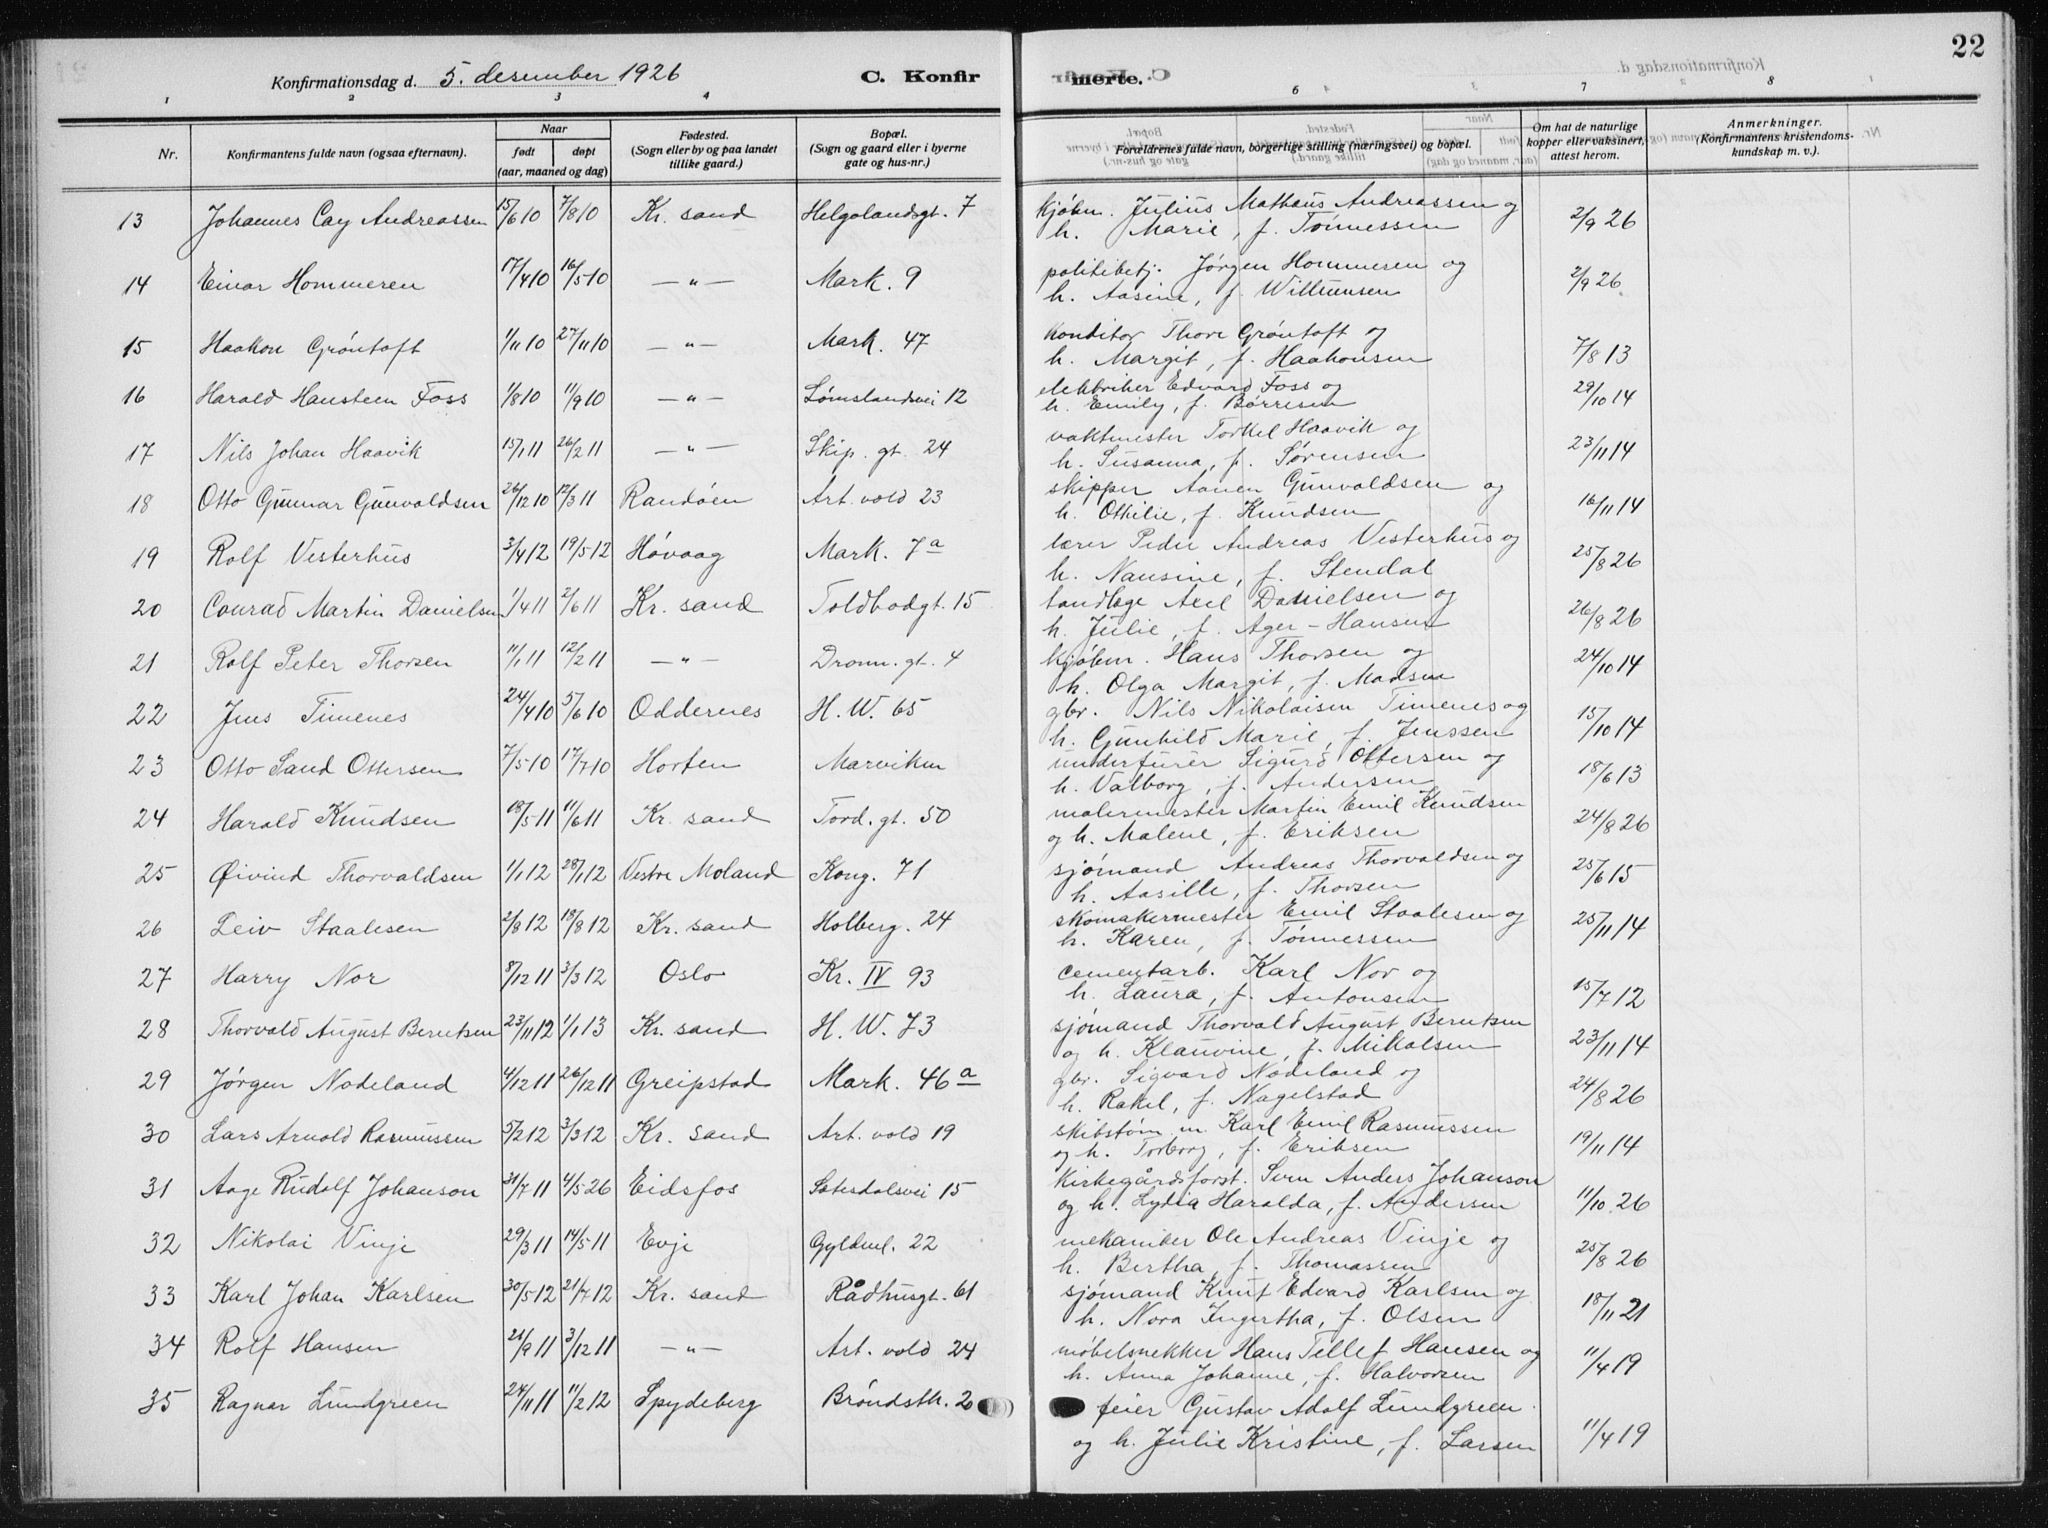 22
Konfirmationsdag d. 5. desember 1926 C. Konfir merte.
1 2 3 4 6 7 8
Nr. Konfirmantens fulde navn (ogsaa efternavn). Naar født døpt (aar, maaned og dag) Fødested. (Sogn eller by og paa landet tillike gaard.) Bopæl. (Sogn og gaard eller i byerne gate og hus-nr.) Forældrenes fulde navn, borgerlige stilling (næringsvei) og bopæl. Om hat de naturlige kopper eller vaksinert, attest herom. Anmerkninger. (Konfirmantens kristendoms-kundskap m. v.).
13 Johannes Cay Andreassen 15/6 10 7/8 10 Kr. sand Helgolandsgt. 7 kjøbm. Julius Mathæus Andreassen og 2/9 26
h. Marie, f. Tønnessen
14 Einar Hommeren 17/4 10 16/5 10 —"— Mark. 9 politibetj. Jørgen Hommeren og 2/9 26
h. Aasine, f. Willumsen
15 Haakon Grøntoft 1/11 10 27/11 10 —"— Mark. 47 konditor Thore Grøntoft og
h. Margit, f. Haakonsen 7/8 13
16 Harald Hansteen Foss 1/8 10 11/9 10 —"— Lømslandsvei 12 elektriker Edvard Foss og 29/10 14
h. Emily, f. Børresen
17 Nils Johan Haavik 15/1 11 26/2 11 —"— Skip. gt. 24 vaktmester Torkel Haavik og 23/11 14
h. Susanna, f. Sørensen
18 Otto Gunnar Gunvaldsen 26/12 10 12/3 11 Randøen Art. vold 23 skipper Aanen Gunvaldsen og 16/11 14
h. Othilie, f. Knudsen
19 Rolf Vesterhus 3/4 12 19/5 12 Høvaag Mark. 7a lærer Peder Andreas Vesterhus og 25/8 26
h. Nansine, f. Stendal
20 Conrad Martin Danielsen 1/4 11 2/6 11 Kr. sand Toldbodgt. 15 tandlæge Axel Danielsen og 26/8 26
h. Julie, f. Ager-Hansen
21 Rolf Peter Thorsen 11/1 11 12/2 11 —"— Dronn. gt. 4 kjøbm. Hans Thorsen og 24/10 14
h. Olga Margit, f. Madsen
22 Jens Timenes 24/4 10 5/6 10 Oddernes H. W. 65 gbr. Nils Nikolaisen Timenes og 15/10 14
h. Gunhild Marie, f. Jenssen
23 Otto Sand Ottersen 7/5 10 17/7 10 Horten Marviken underfurer Sigurd Ottersen og 18/6 13
h. Valborg, f. Andersen
24 Harald Knudsen 18/5 11 11/6 11 Kr. sand Tord. gt. 50 malermester Martin Emil Knudsen 24/8 26
og h. Malene, f. Eriksen
25 Øivind Thorvaldsen 1/1 12 28/1 12 Vestre Moland Kong. 71 sjømand Andreas Thorvaldsen og 25/6 15
h. Aasille, f. Thorsen
26 Leiv Staalesen 2/8 12 18/8 12 Kr. sand Holberg. 24 skomakermester Emil Staalesen og 25/11 14
h. Karen, f. Tønnessen
27 Harry Nor 8/12 11 3/3 12 Oslo Kr. IV 93 cementarb. Karl Nor og
h. Laura, f. Antonsen 15/7 12
28 Thorvald August Berntsen 23/11 12 1/1 13 Kr. sand H. W. 73 sjømand Thorvald August Berntsen
og h. Klauvine, f. Mikalsen 23/11 14
29 Jørgen Nodeland 4/12 11 26/12 11 Greipstad Mark. 46a gbr. Sigvard Nodeland og
h. Rakel, f. Nagelstad 24/8 26
30 Lars Arnold Rasmussen 5/2 12 3/3 12 Kr. sand Art. vold 19 skibstøm. m. Karl Emil Rasmussen
og h. Torborg, f. Eriksen 19/11 14
31 Aage Rudolf Johanson 31/7 11 4/5 26 Eidsfos Setesdalsvei 15 kirkegårdsforst. Sven Anders Johanson
og h. Lydia Haralda, f. Andersen 11/10 26
32 Nikolai Vinje 29/3 11 14/5 11 Evje Gyldenl. 22 mekaniker Ole Andreas Vinje og
h. Bertha, f. Thomassen 25/8 26
33 Karl Johan Karlsen 30/5 12 21/7 12 Kr. sand Rådhusgt. 61 sjømand Knut Edvard Karlsen og
h. Nora Ingertha, f. Olsen 18/11 21
34 Rolf Hansen 21/9 11 3/12 11 —"— Art. vold 24 møbelsnekker Hans Tellef Hansen og
h. Anna Johanne, f. Halvorsen 11/4 19
35 Ragnar Lundgreen 24/11 11 11/2 12 Spydeberg Brøndsth. 2 feier Gustav Adolf Lundgreen
og h. Julie Kristine, f. Larsen 11/4 19